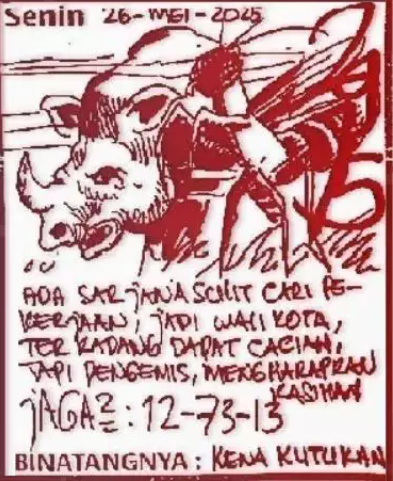 Senin 26-MEI-2025
5
ADA SARJANA SULIT CARI PE-
KERJAAN, JADI WALI KOTA,
TERKADANG DAPAT CACIAN,
TAPI PENGEMIS, MENGHARAPKAN
KASIHAN
JAGA2 : 12-73-13
BINATANGNYA : KENA KUTUKAN